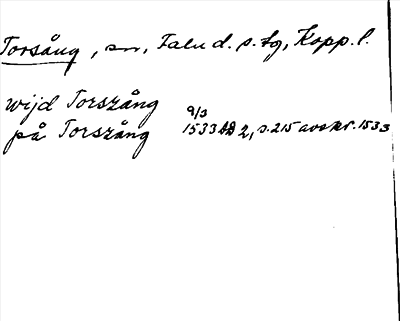 Torsång, sn, Falu d. s. tg, Kopp. l.
wijd Torszång
på Torszång 9/3 1533 AB 2, s. 215 avskr. 1533